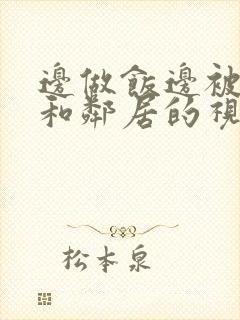 邊做飯邊被
和鄰居的視
松本泉